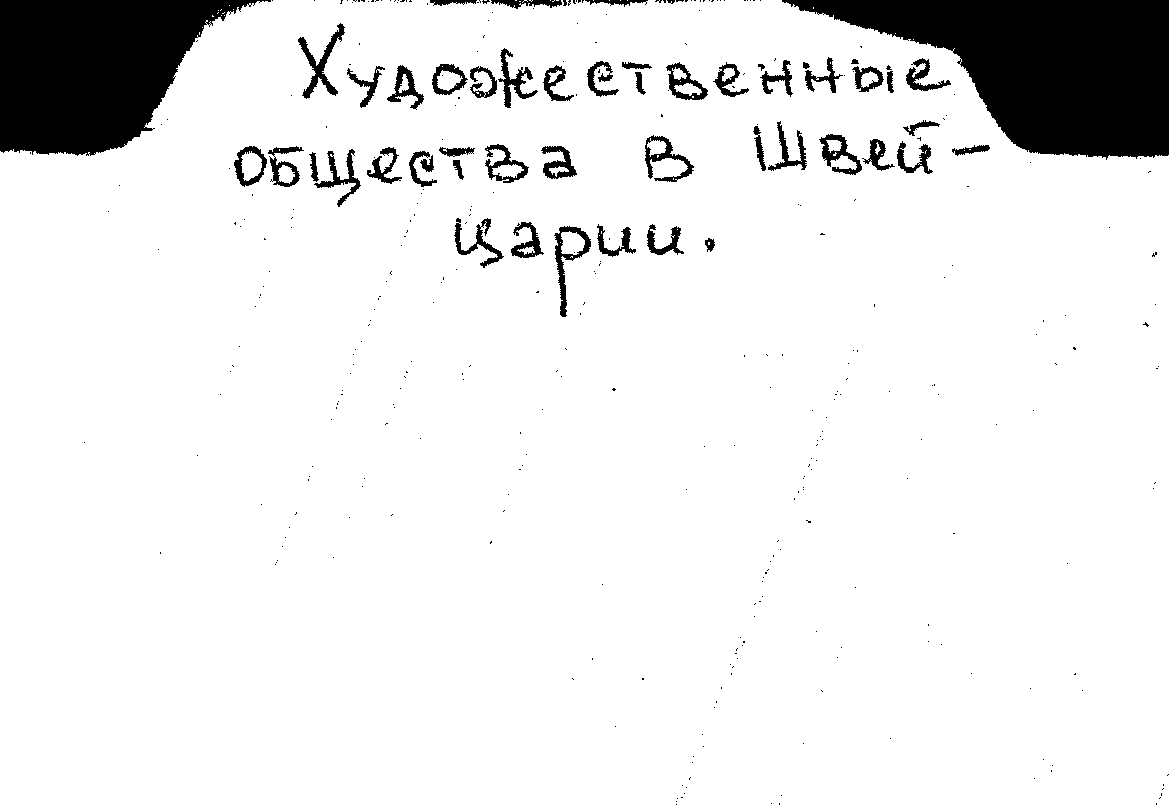 Художественные
общества в Швей-
царии.